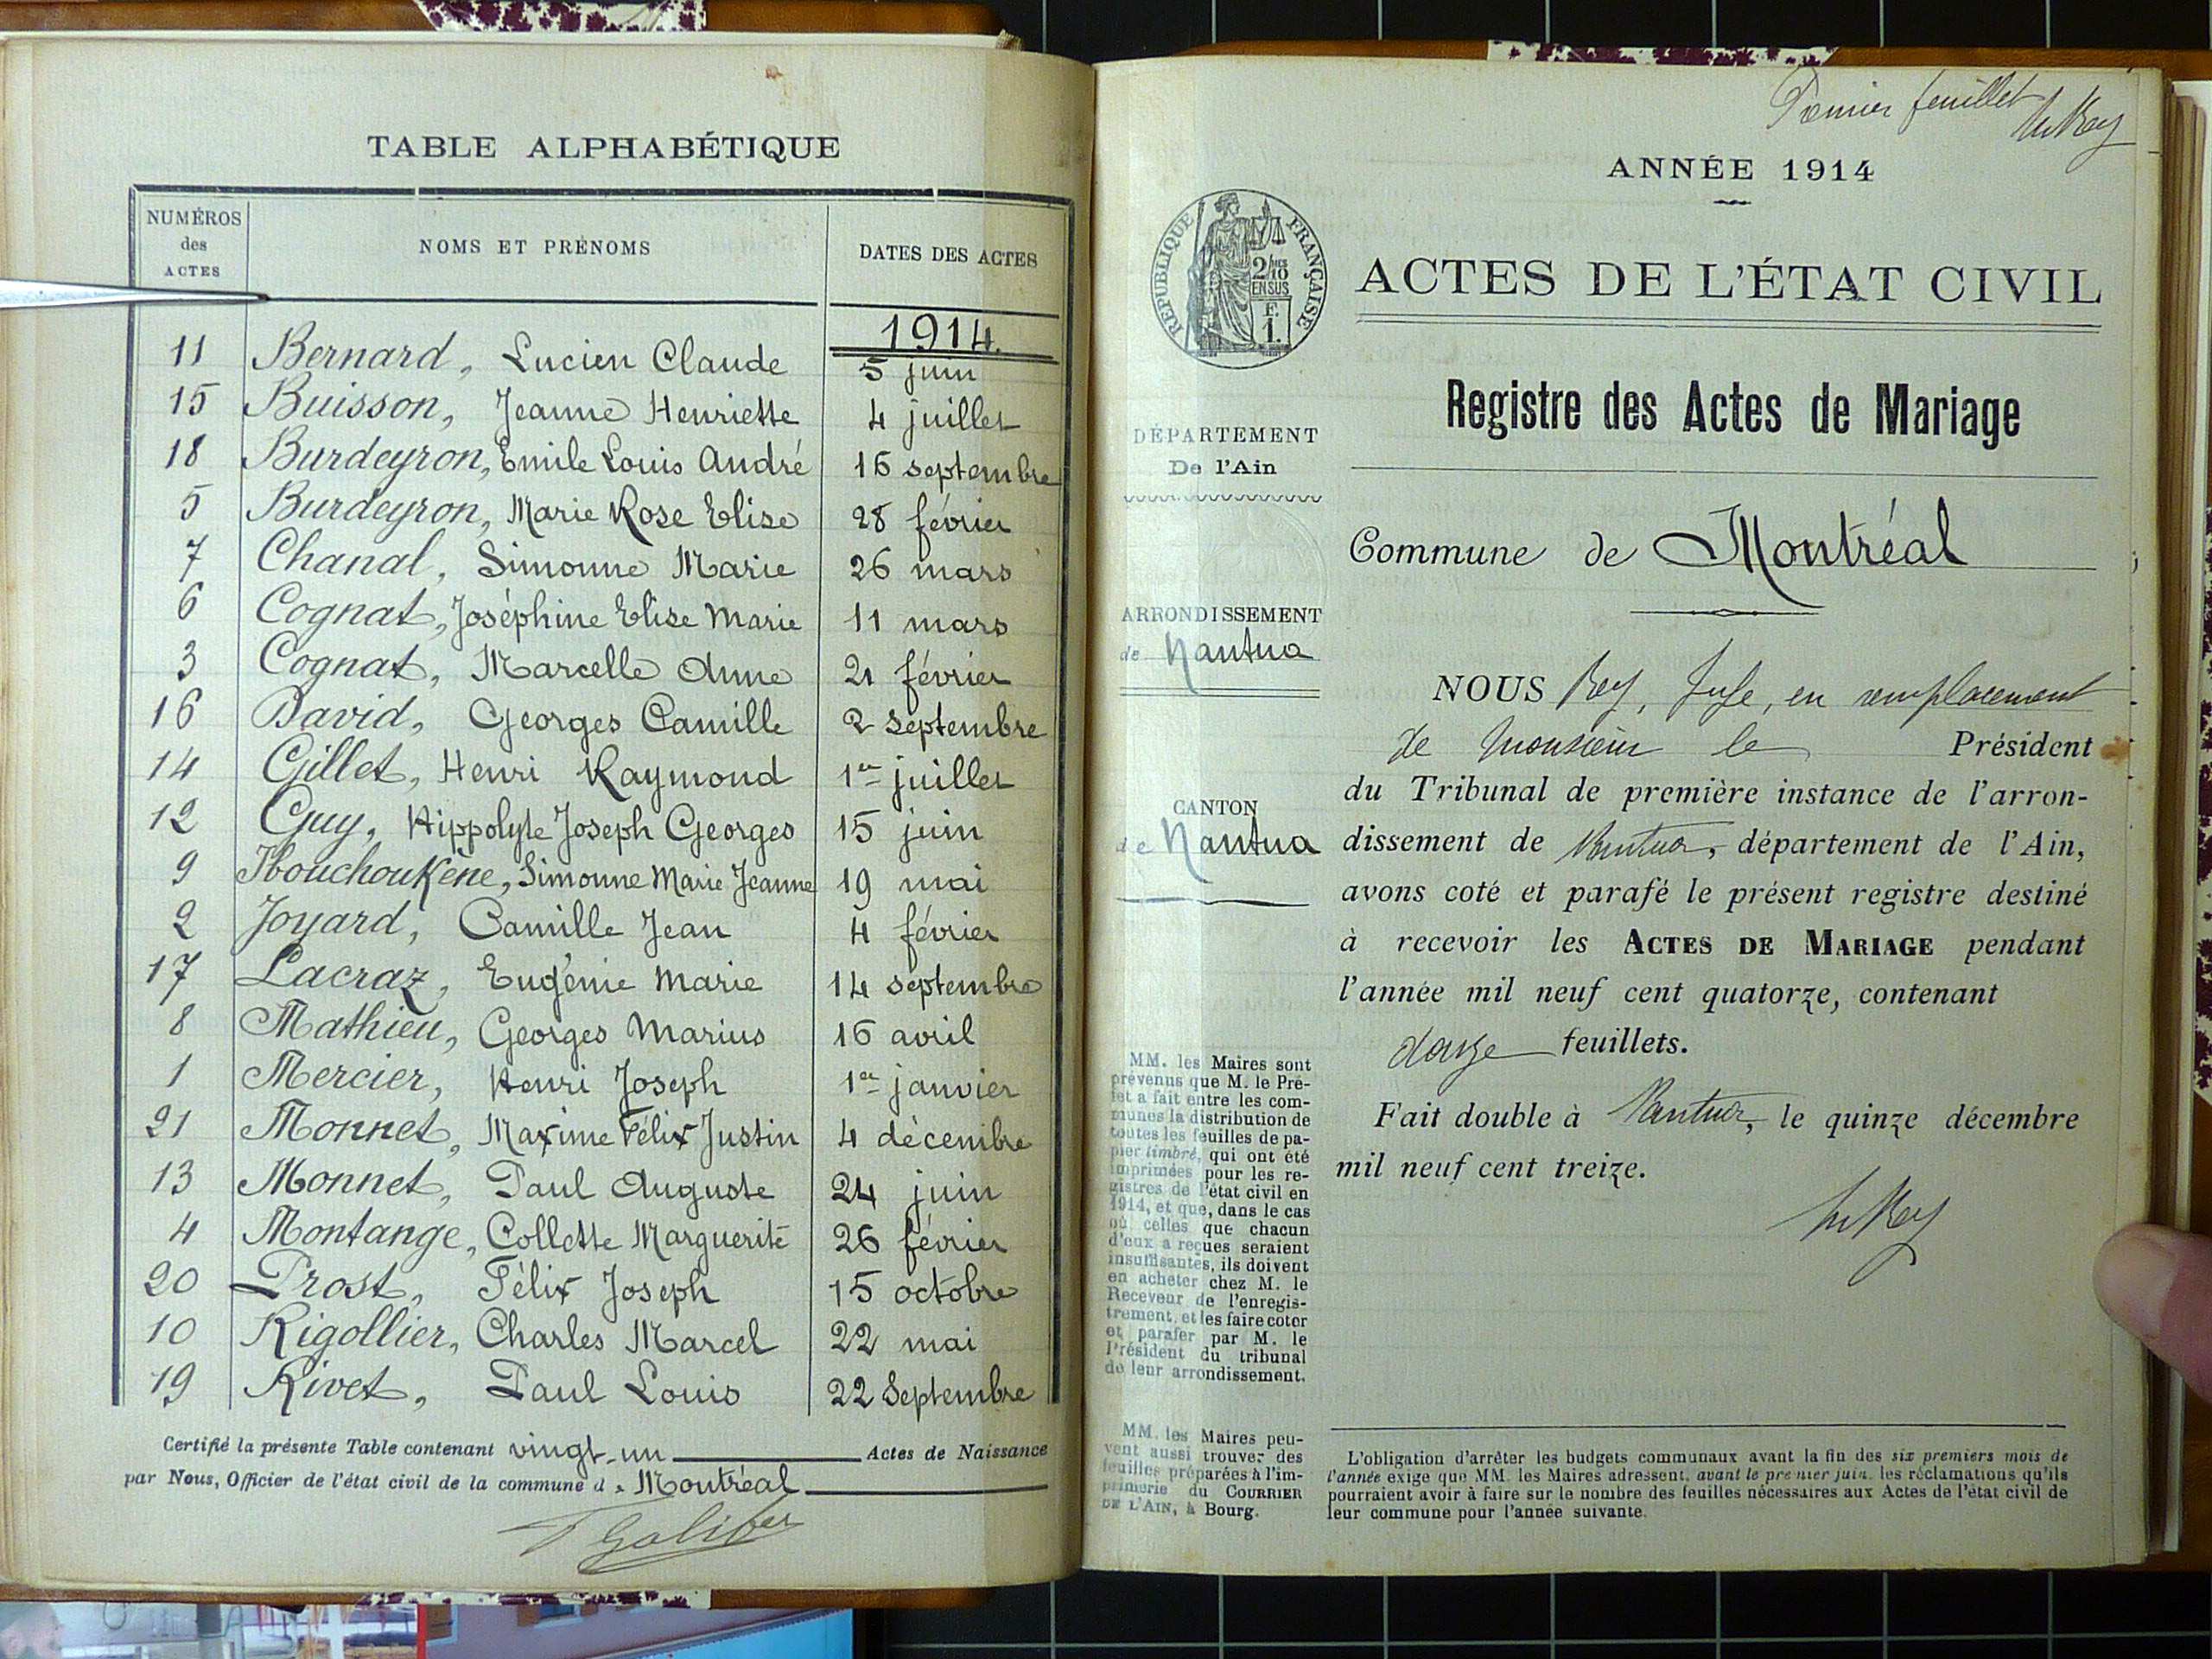 TABLE ALPHABÉTIQUE
NUMÉROS
des
ACTES
NOMS ET PRÉNOMS
DATES DES ACTES
1914
11 Bernard, Lucien Claude 5 juin
15 Buisson, Jeanne Henriette 4 juillet
18 Burdeyron, Emile Louis André 16 septembre
5 Burdeyron, Marie Rose Elise 28 février
7 Chanal, Simonne Marie 26 mars
6 Cognat, Joséphine Elise Marie 11 mars
3 Cognat, Marcelle Anne 21 février
16 David, Georges Camille 2 septembre
14 Gillet, Henri Raymond 1er juillet
12 Guy, Hippolyte Joseph Georges 15 juin
9 Ibouchoukène, Simonne Marie Jeanne 19 mai
2 Joyard, Camille Jean 4 février
17 Lacraz, Eugénie Marie 14 septembre
8 Mathieu, Georges Marius 16 avril
1 Mercier, Henri Joseph 1er janvier
21 Monnet, Maxime Félix Justin 4 décembre
13 Monnet, Paul Auguste 24 juin
4 Montange, Collette Marguerite 26 février
20 Prost, Félix Joseph 15 octobre
10 Rigollier, Charles Marcel 22 mai
19 Rivet, Paul Louis 22 Septembre
Certifié la présente Table contenant vingt-un Actes de Naissance
par Nous, Officier de l'état civil de la commune d. Montréal
Premier feuillet
ANNÉE 1914
RÉPUBLIQUE FRANÇAISE
2/10
EN SUS
F.
1.
ACTES DE L'ÉTAT CIVIL
Registre des Actes de Mariage
DÉPARTEMENT
De l'Ain
Commune de Montréal
ARRONDISSEMENT
de Nantua
CANTON
de Nantua
NOUS Rey, Juge, en remplacement
de Monsieur le Président
du Tribunal de première instance de l'arron-
dissement de Nantua, département de l'Ain,
avons coté et parafé le présent registre destiné
à recevoir les ACTES DE MARIAGE pendant
l'année mil neuf cent quatorze, contenant
douze feuillets.
Fait double à Nantua, le quinze décembre
mil neuf cent treize.
MM. les Maires sont
prévenus que M. le Pré-
fet a fait entre les com-
munes la distribution de
toutes les feuilles de pa-
pier timbré, qui ont été
imprimées pour les re-
gistres de l'état civil en
1914, et que, dans le cas
où celles que chacun
d'eux a reçues seraient
insuffisantes, ils doivent
en acheter chez M. le
Receveur de l'enregis-
trement, et les faire coter
et parafer par M. le
Président du tribunal
de leur arrondissement.
MM. les Maires peu-
vent aussi trouver des
feuilles préparées à l'im-
primerie du COURRIER
DE L'AIN, à Bourg.
L'obligation d'arrêter les budgets communaux avant la fin des six premiers mois de
l'année exige que MM. les Maires adressent, avant le premier juin, les réclamations qu'ils
pourraient avoir à faire sur le nombre des feuilles nécessaires aux Actes de l'état civil de
leur commune pour l'année suivante.